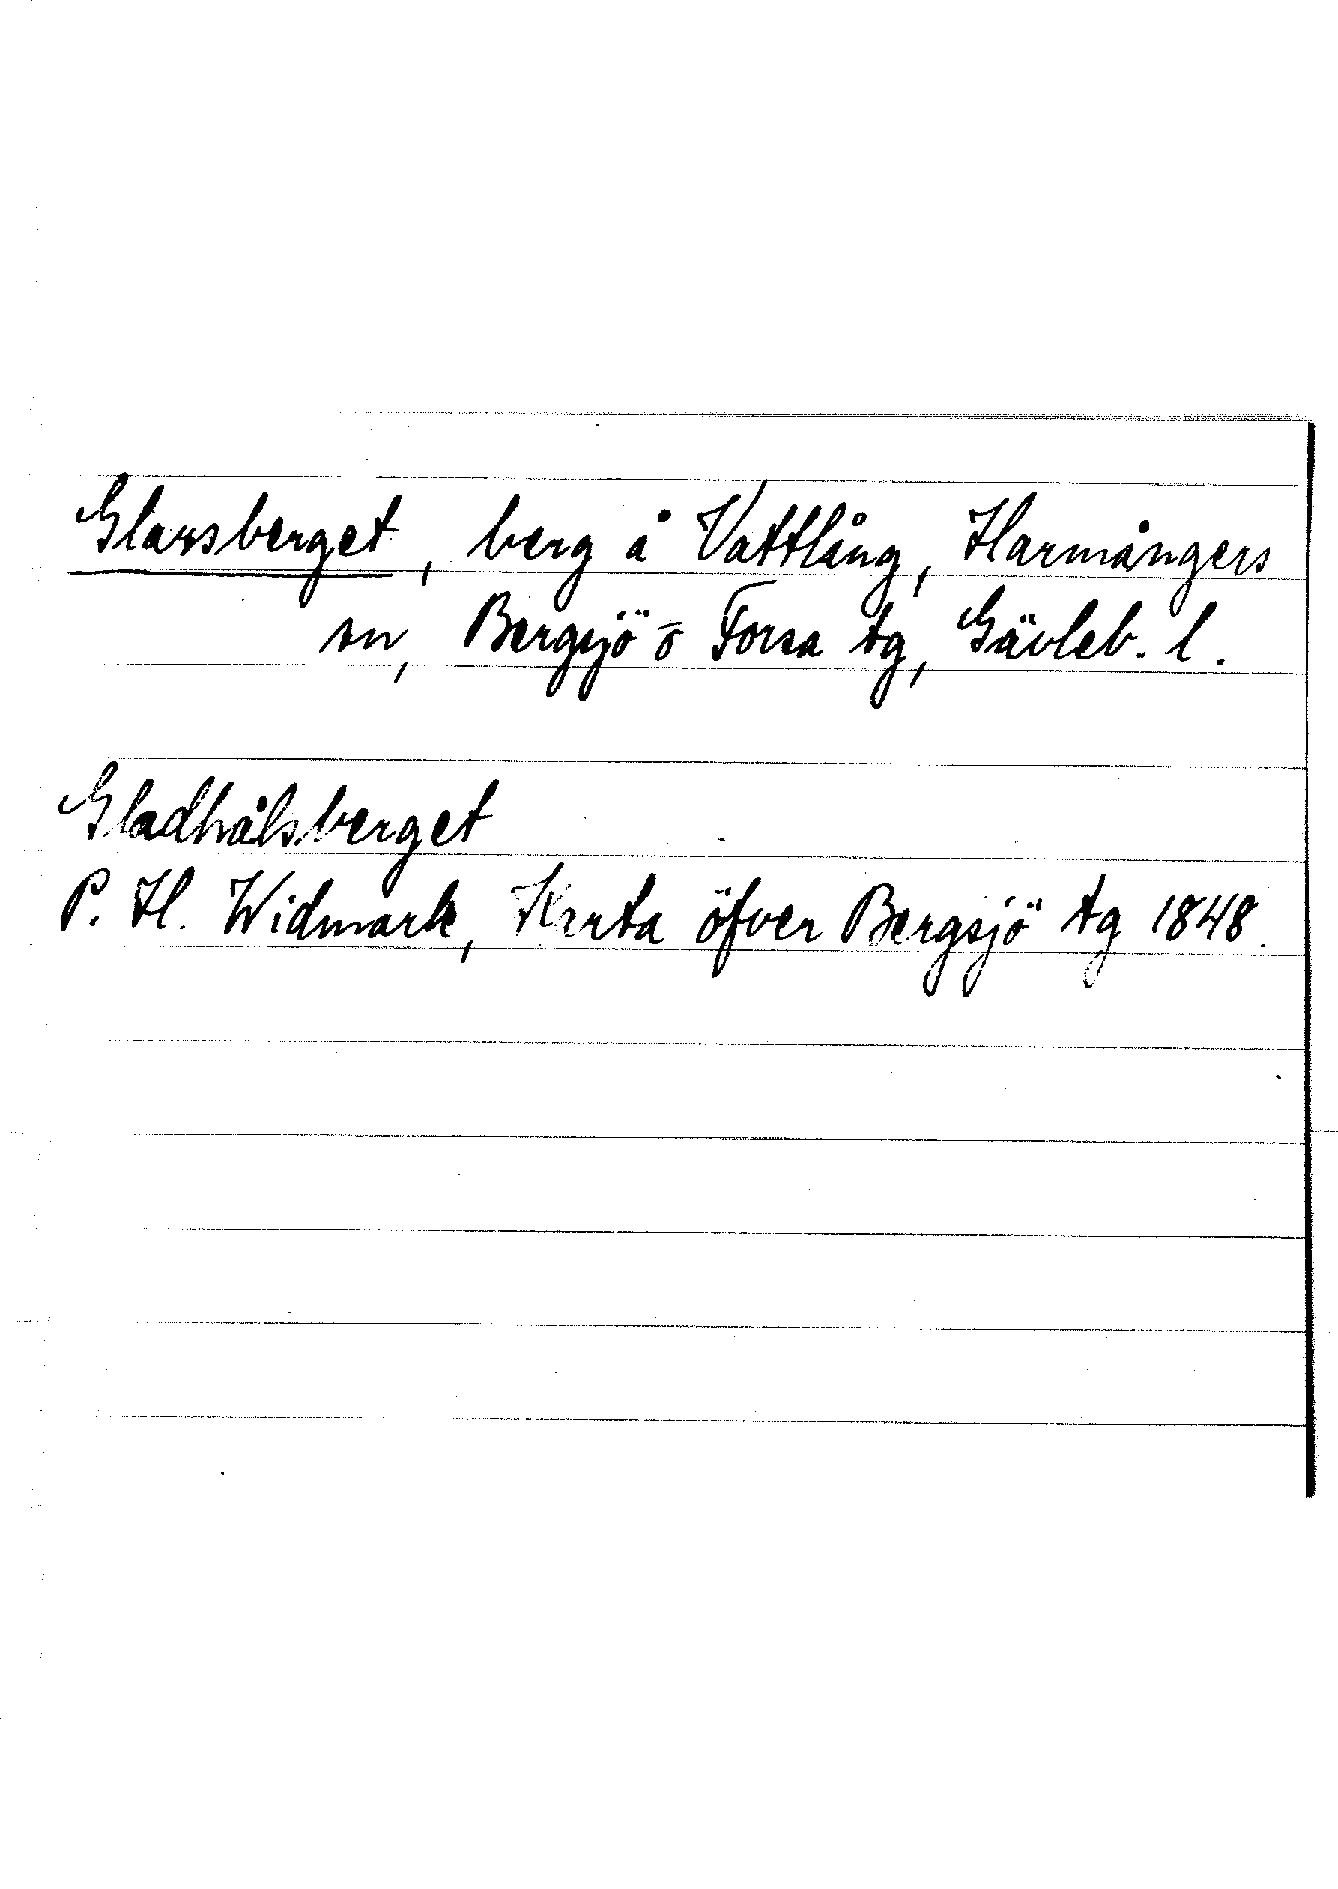 Glarsberget, berg å Vattlång, Harmångers
sn, Bergsjö o Forsa tg, Gävleb. l.
Gladhålsberget
P. H. Widmark, Karta öfver Bergsjö tg 1848.